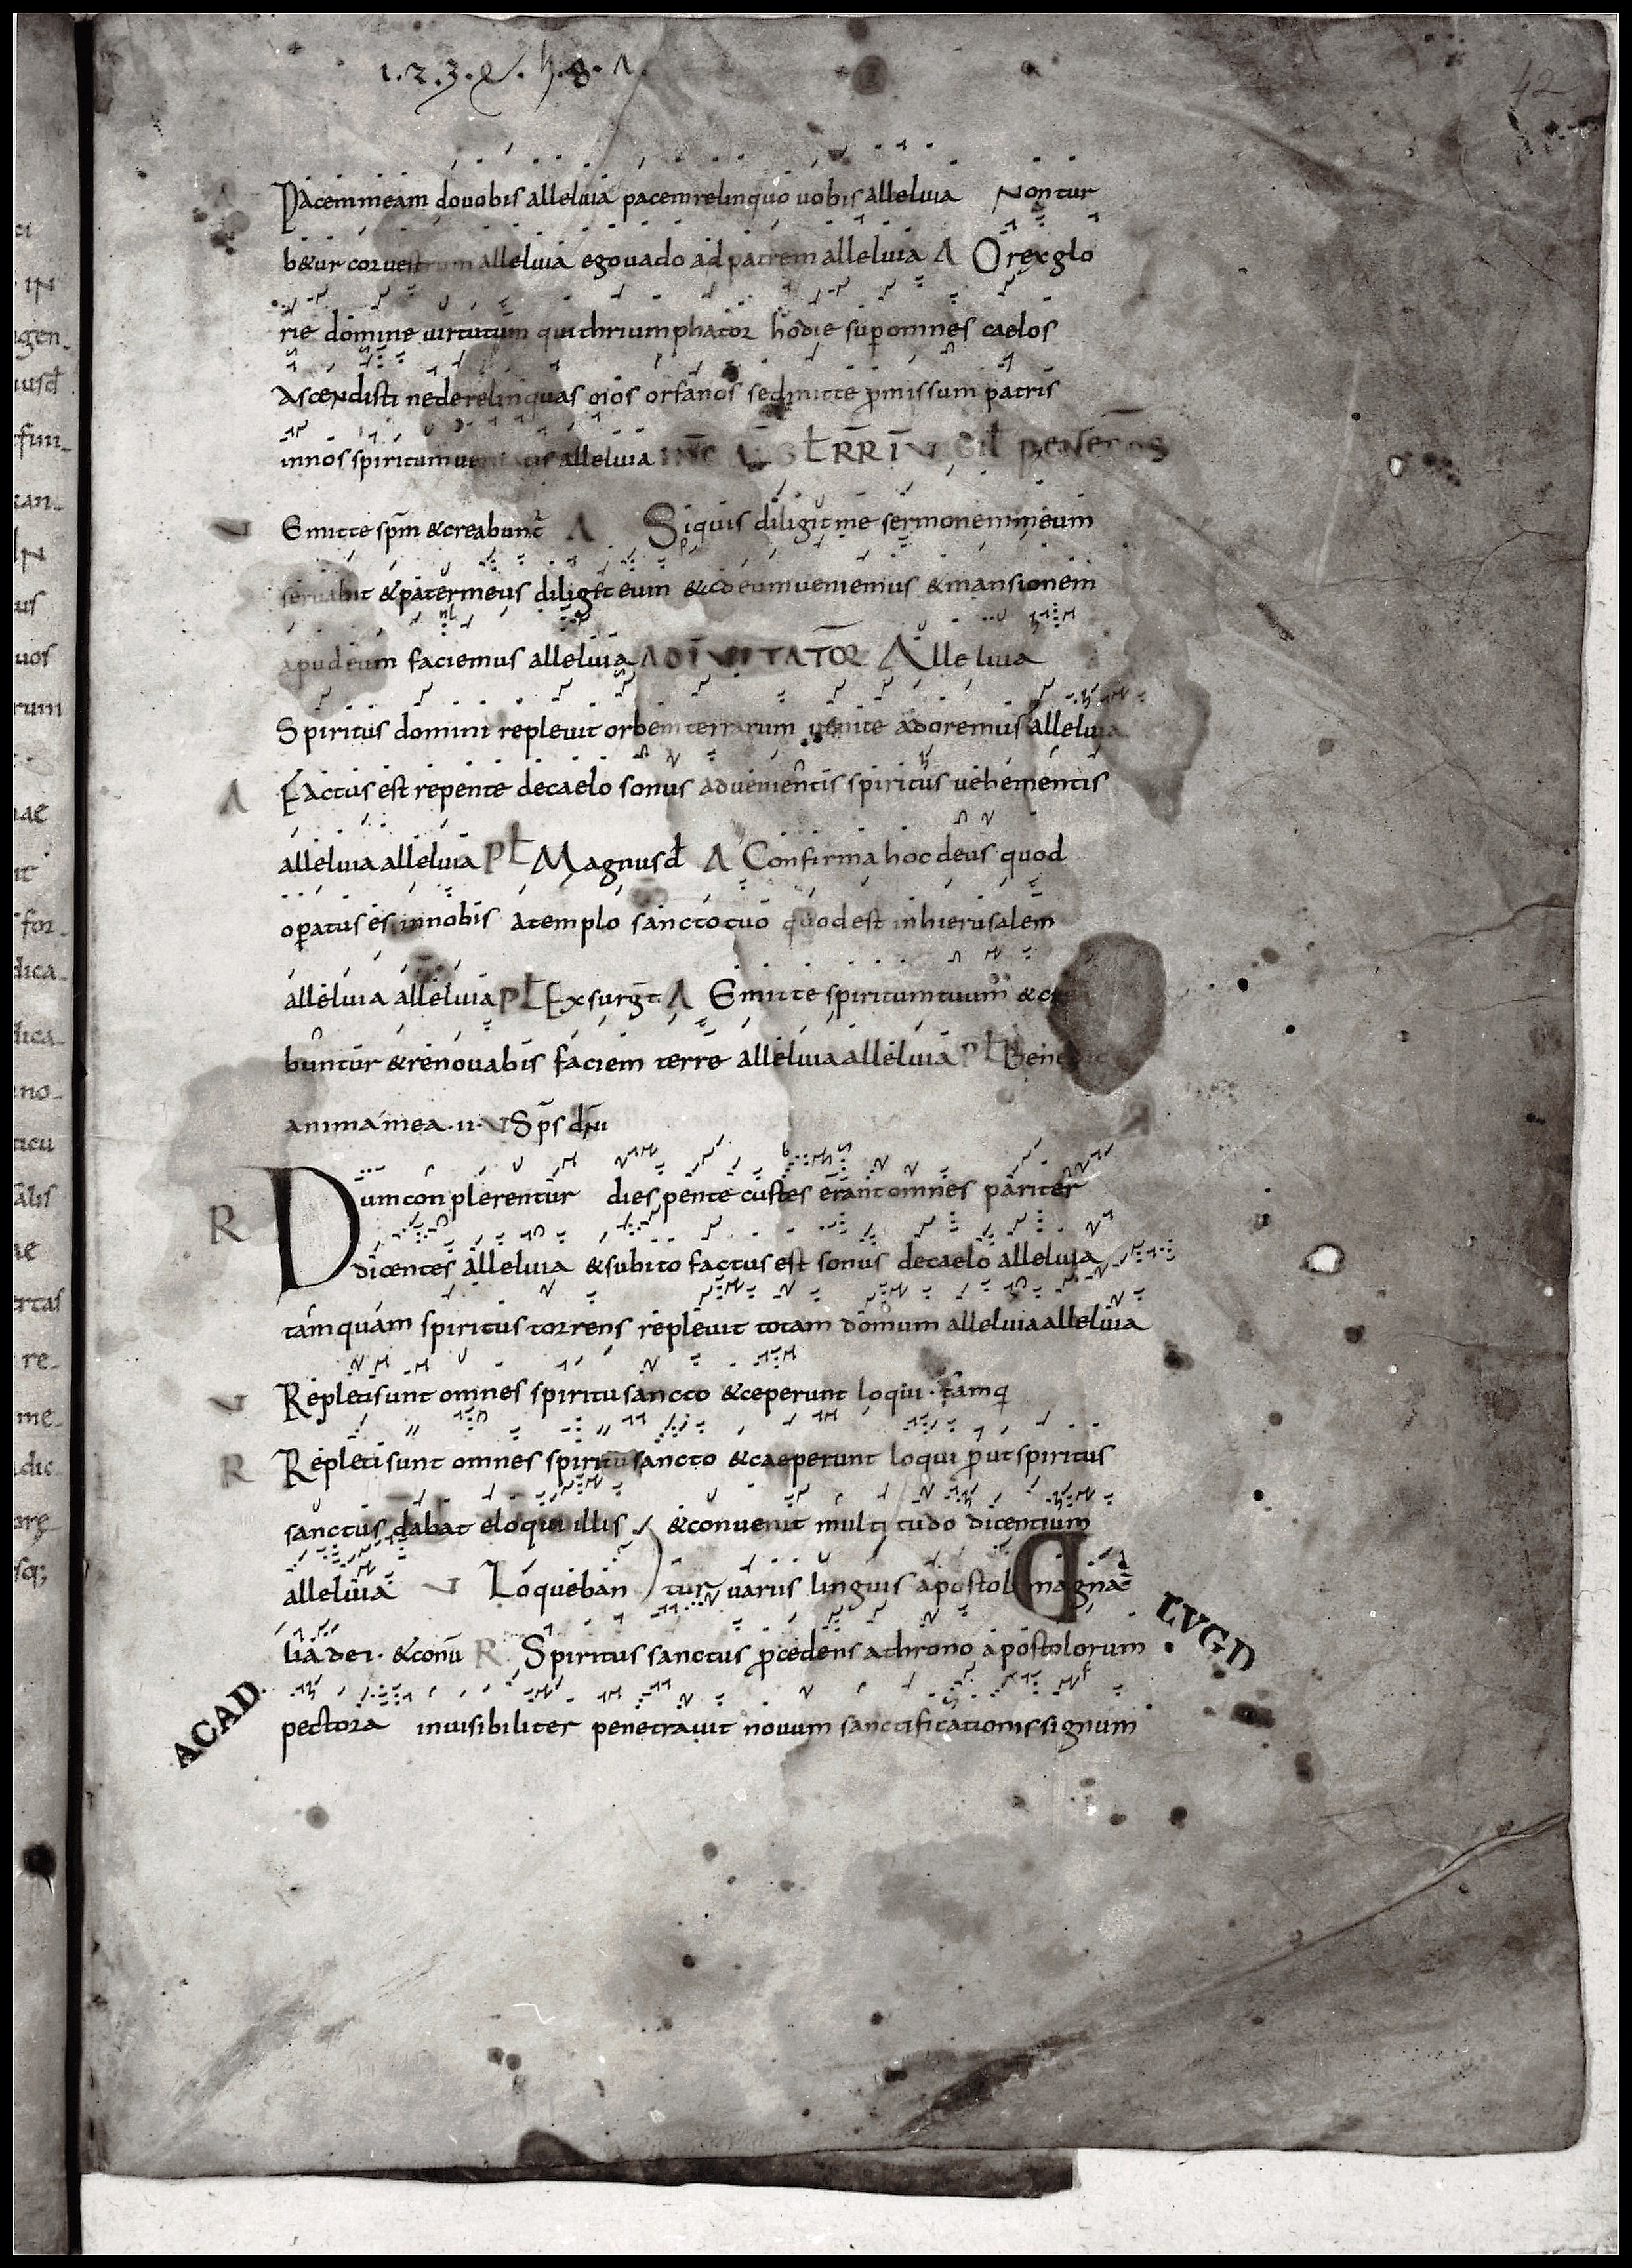 42
Pacem meam do vobis alleluia pacem relinquo uobis alleluia Non tur
b&ur cor vestrum alleluia ego uado ad patrem alleluia A O rex glo
rie domine uirtutum qui thriumphator hodie sup omnes caelos
Ascendisti ne derelinquas oios orfanos sed mitte pmissum patris
in nos spiritum ueritatis alleluia RR IN UIGIL PENTECOS
V Emitte spm & creabunt A Si quis diligit me sermonem meum
seruabit & pater meus diliget eum & ad eum ueniemus & mansionem
apud eum faciemus alleluia AD INUITATOR Alleluia
Spiritus domini repleuit orbem terrarum uenite adoremus alleluia
A Factus est repente de caelo sonus advenientis spiritus vehementis
alleluia alleluia PL Magnus d A Confirma hoc deus quod
opatus es in nobis a templo sancto tuo quod est in hierusalem
alleluia alleluia PL Exsurgt A Emitte spiritum tuum & crea
buntur & renovabis faciem terre alleluia alleluia PL Benedic
anima mea .II. V Sps dni
R Dum conplerentur dies pentecustes erant omnes pariter
dicentes alleluia & subito factus est sonus de caelo alleluia
tamquam spiritus torrens repleuit totam domum alleluia alleluia
V Repleti sunt omnes spiritu sancto & ceperunt loqui . tamq
R Repleti sunt omnes spiritu sancto & caeperunt loqui put spiritus
sanctus dabat eloqui illis & convenit multitudo dicentium
alleluia V Loqueban tur variis linguis apostoli magna
lia dei . & conu R Spiritus sanctus pcedens a throno apostolorum
pectora inuisibiliter penetrauit novum sanctificationis signum
ACAD.
LVGD